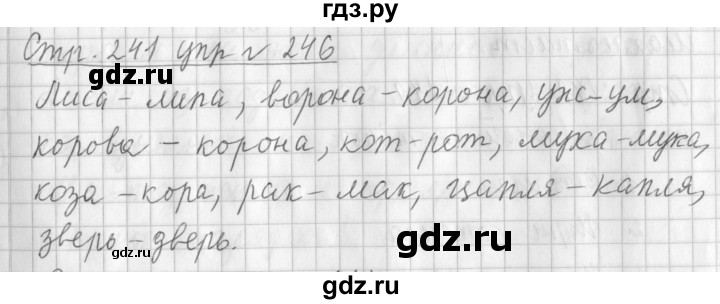 гдз.ру
Стр. 241 упр № 246
Лиса - липа, ворона - корона, уж - ум,
корова - корона, кот - рот, муха - мука,
коза - кора, рак - мак, цапля - капля,
зверь - дверь.
gdz.ru gdz.ru
gdz.ru
gdz.ru
gdz.ru